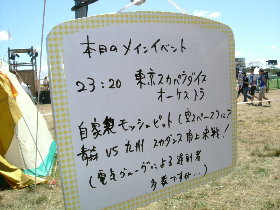 本日のメインイベント
23:20 東京スカパラダイス
オーケストラ
自家製モッシュピット(空スペース)にて
青森 VS 九州 スカダンス 頂上決戦!
(電気グルーヴによる遅刻者
多数ですが...)